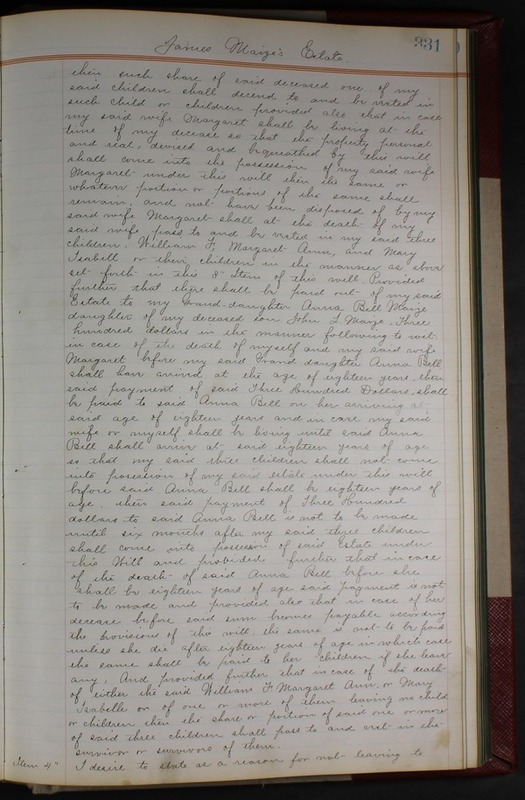 James Maize's Estate.
331
then such share of said deceased one of my
said children shall decend to and be vested in
such child or children provided also that in case
my said wife Margaret shall be living at the
time of my decease so that the property personal
and real, devised and bequeathed by this will
shall come into the possession of my said wife
Margaret under this will then the same or
whatever portion or portions of the same shall
remain, and not have been disposed of by my
said wife Margaret shall at the death of my
said wife pass to and be vested in my said three
children. William F, Margaret Ann, and Mary
Isabell or their children in the manner as above
set forth in this 3" Item of this will. Provided
further that there shall be paid out of my said
Estate to my Grand-daughter Anna Bell Maize
daughter of my deceased son John F. Maize, Three
hundred dollars in the manner following to wit:
in case of the death of myself and my said wife
Margaret before my said Grand daughter Anna Bell
shall have arrived at the age of eighteen years, then
said payment of said Three Hundred Dollars, shall
be paid to said Anna Bell on her arriving at
said age of eighteen years and in case my said
wife or myself shall be living until said Anna
Bell shall arrive at said eighteen years of age
so that my said three children shall not come
into possession of my said estate under this will
before said Anna Bell shall be eighteen years of
age, then said payment of Three Hundred
dollars to said Anna Bell is not to be made
until six months after my said three children
shall come into possession of said Estate under
this Will and provided further that in case
of the death of said Anna Bell before she
shall be eighteen years of age said payment is not
to be made and provided also that in case of her
decease before said sum becomes payable according
the provisions of this will, the same is not to be paid
unless she die after eighteen years of age in which case
the same shall be paid to her children if she leave
any, And provided further that in case of the death
of either the said William F. Margaret Ann, or Mary
Isabelle or of one or more of them leaving no child
or children then the share or portion of said one or more
of said three children shall pass to and vest in the
survivor or survivors of them.
Item 4" I desire to state as a reason for not leaving to